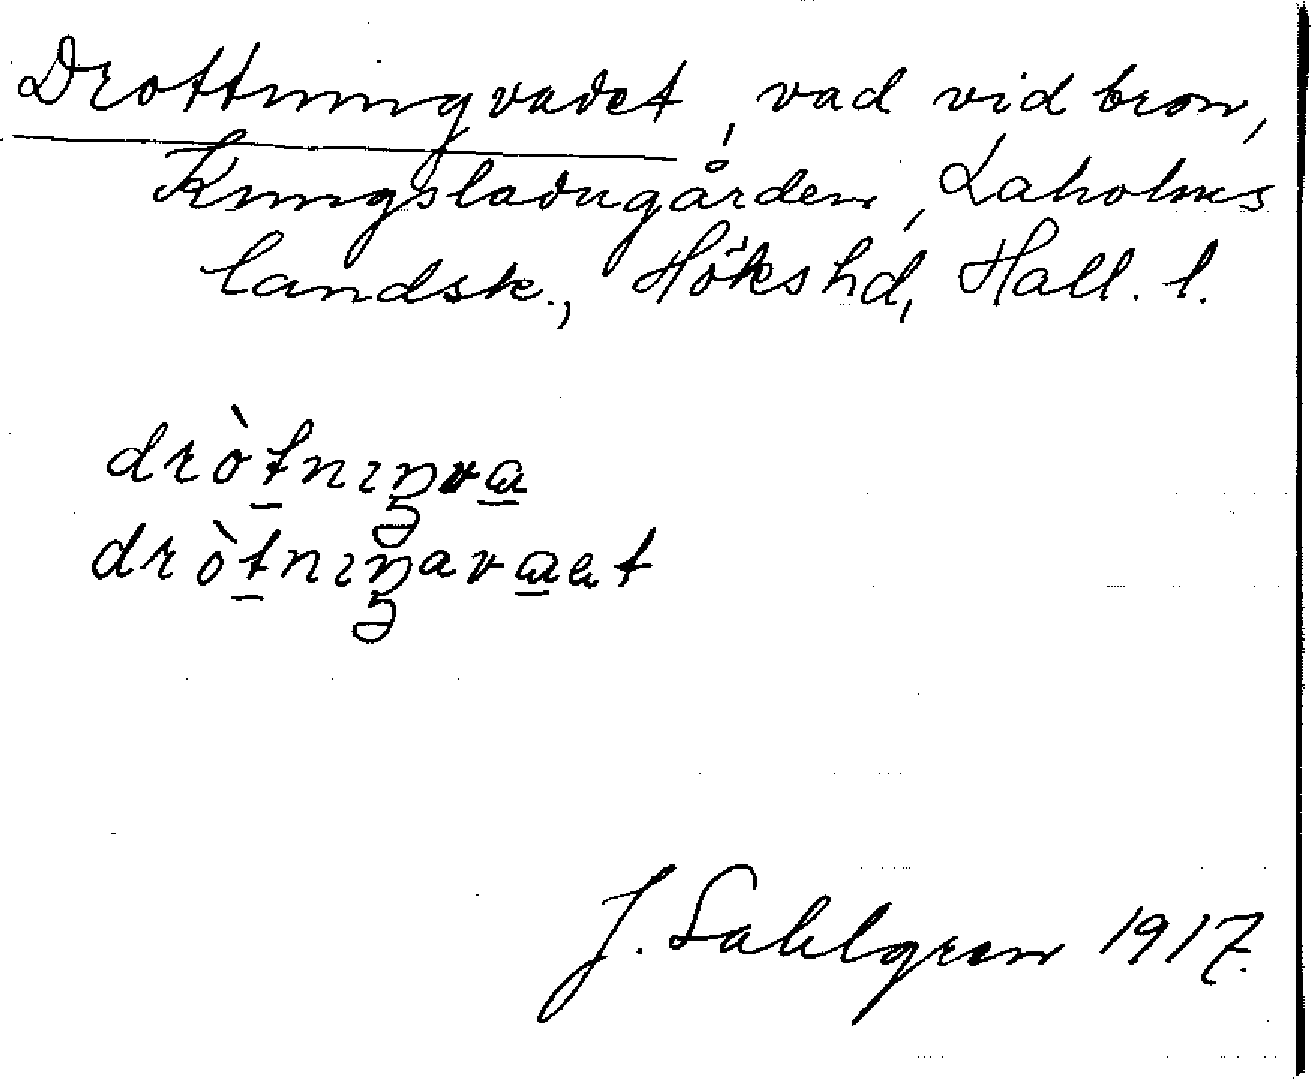 Drottningvadet, vad vid bron,
Kungsladugården, Laholms
landsk., Höks hd, Hall. l.
dròt̠nıŋva̠
dròt̠nıŋava̠et
J. Sahlgren 1917.